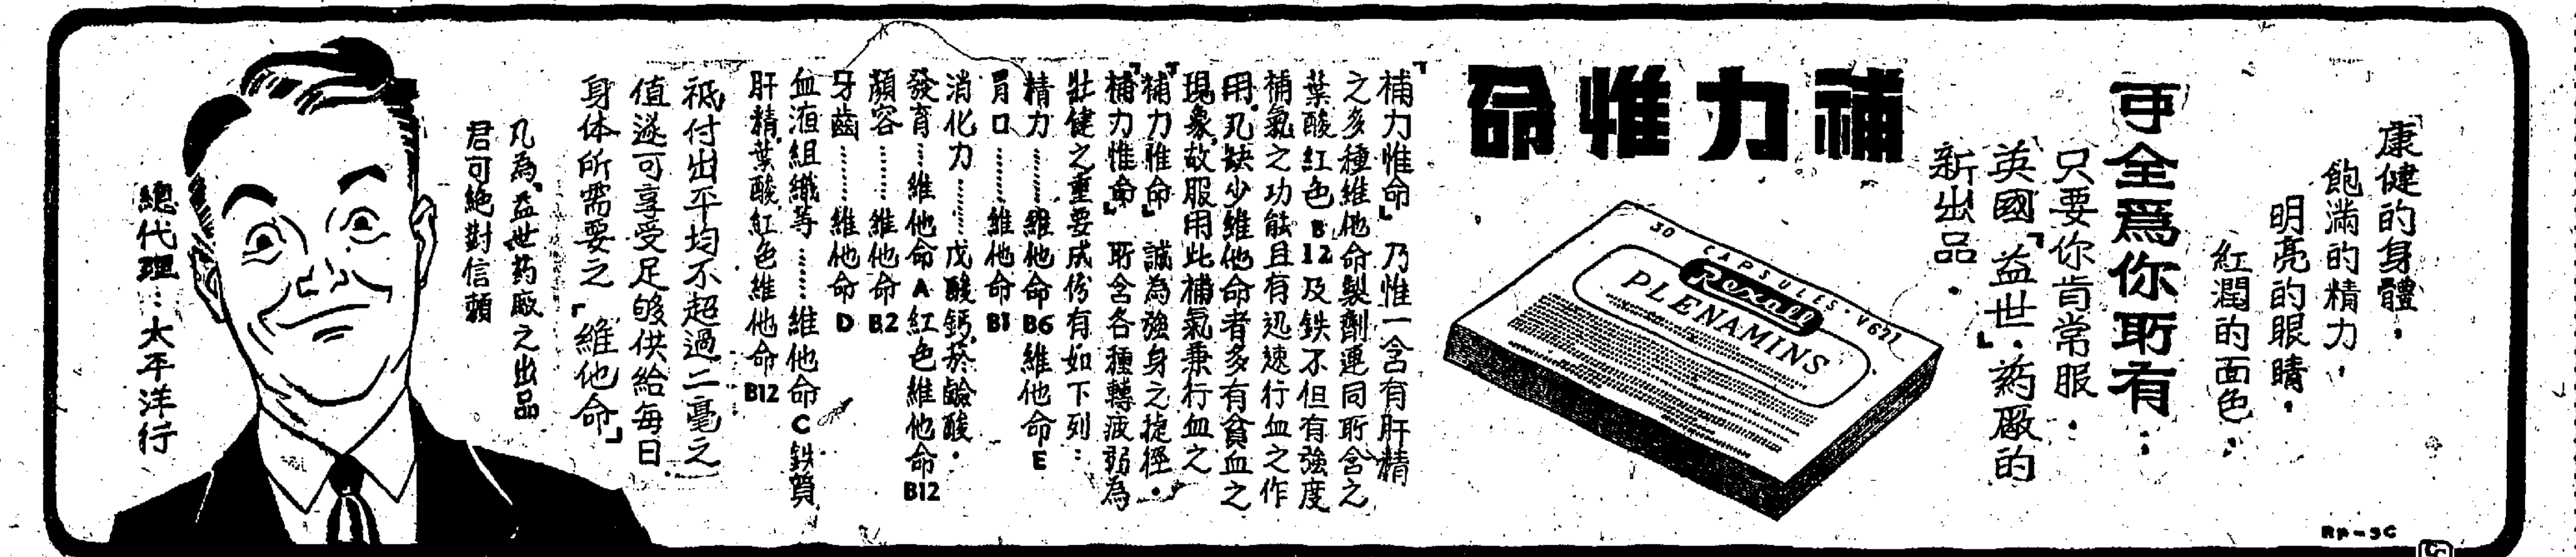 康健的身體，
飽滿的精力，
明亮的眼睛，
紅潤的面色：
可全爲你所有：
只要你肯常服：
英國「益世」药廠的
新出品．
補力惟命
30 CAPSULES · V671
Rexall
PLENAMINS
「補力惟命」乃惟一含有肝精
之多種維他命製劑連同所含之
葉酸紅色B12及鉄不但有強度
補氣之功能且有迅速行血之作
用．凡缺少維他命者多有貧血之
現象．故服用此補氣兼行血之
「補力惟命」誠為強身之捷徑．
「補力惟命」所含各種轉疲弱為
壯健之重要成份有如下列：
精力………維他命B6維他命E
胃口………維他命B1
消化力………戊酸鈣．菸鹼酸．
發育……維他命A紅色維他命B12
顏容………維他命B2
牙齒………維他命D
血液組織等……維他命C鉄質
肝精．葉酸紅色維他命B12
祗付出平均不超過二毫之
值遂可享受足够供給每日
身体所需要之「維他命」
凡為．益世药廠之出品
君可絕對信賴
總代理：太平洋行
RP-9C